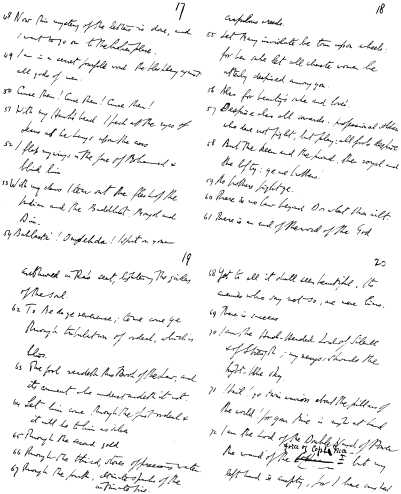 17
48 Now this mystery of the letters is done, and
I want to go on to the holier place.
49 I am in a secret fourfold word, the blasphemy against
all gods of men.
50 Curse them! Curse them! Curse them!
51 With my Hawk's head I peck at the eyes of
Jesus as he hangs upon the cross
52 I flap my wings in the face of Mohammed &
blind him
53 With my claws I tear out the flesh of the
Indian and the Buddhist, Mongol and
Din.
54 Bahlasti! Ompehda! I spit on your
18
crapulous creeds.
55 Let Mary inviolate be torn upon wheels:
for her sake let all chaste women be
utterly despised among you
56 Also for beauty's sake and love's
57 Despise also all cowards; professional soldiers
who dare not fight, but play; all fools despise
58 But the keen and the proud, the royal and
the lofty; ye are brothers!
59 As brothers fight ye.
60 There is no law beyond Do what thou wilt
61 There is an end of the word of the God
19
enthroned in Ra's seat, lightening the girders
of the soul
62 To Me do ye reverence; to me come ye
through tribulation of ordeal, which is
bliss.
63 The fool readeth this Book of the Law, and
its comment & he understandeth it not
64 Let him come through the first ordeal &
it will be to him as silver
65 Through the second gold
66 Through the third, stones of precious water
67 Through the fourth, ultimate sparks of the
intimate fire
20
68 Yet to all it shall seem beautiful. Its
enemies who say not so, are mere liars.
69 There is success
70 I am the Hawk-Headed Lord of Silence
& of Strength; my nemyss shrouds the
night-blue sky
71 Hail! ye twin warriors about the pillars of
the world! for your time is nigh at hand
72 I am the Lord of the Double Wand of Power
Force of Coph Nia
the wand of the but my
left hand is empty, for I have crushed